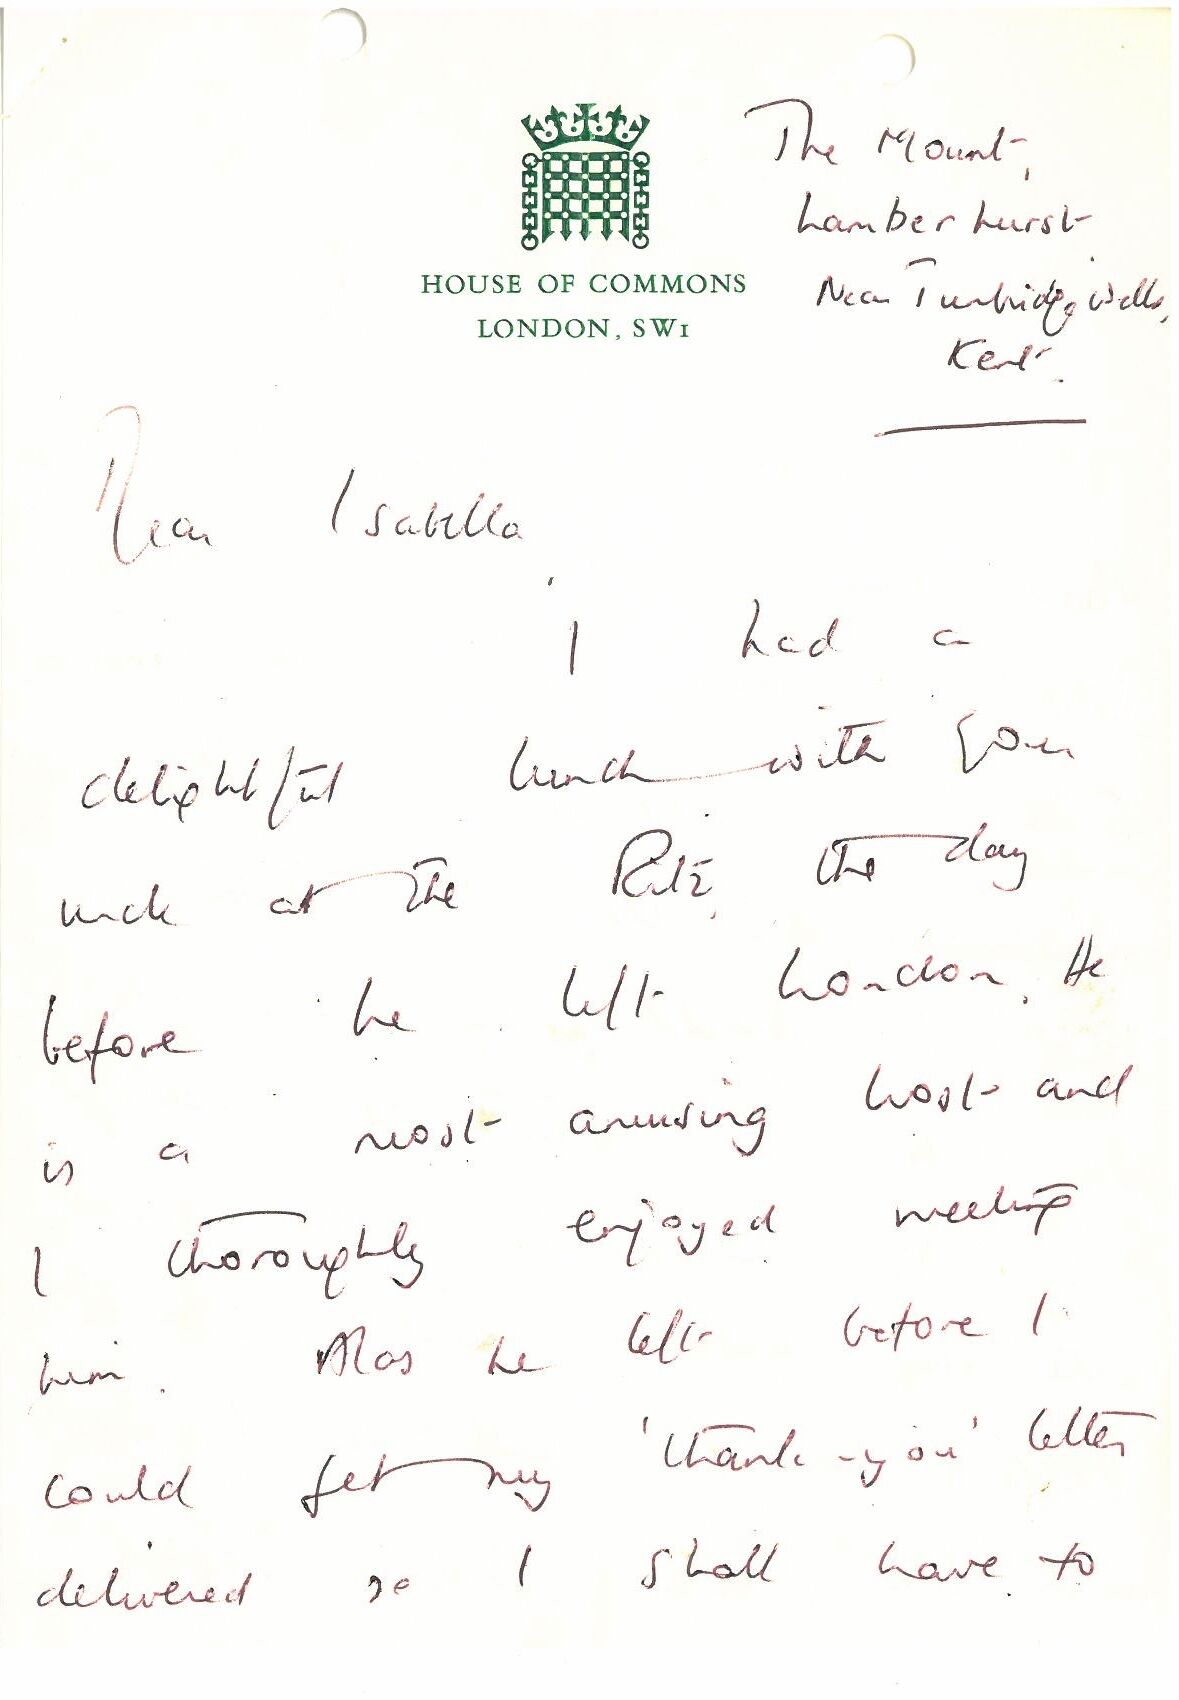 HOUSE OF COMMONS
LONDON, SW1
The Mount,
Lamberhurst
Near Tunbridge Wells,
Kent.
Dear Isabella,
I had a
delightful lunch with your
uncle at the Ritz, the day
before he left London. He
is a most amusing host and
I thoroughly enjoyed meeting
him. Alas he left before I
could get my 'thank-you' letter
delivered so I shall have to